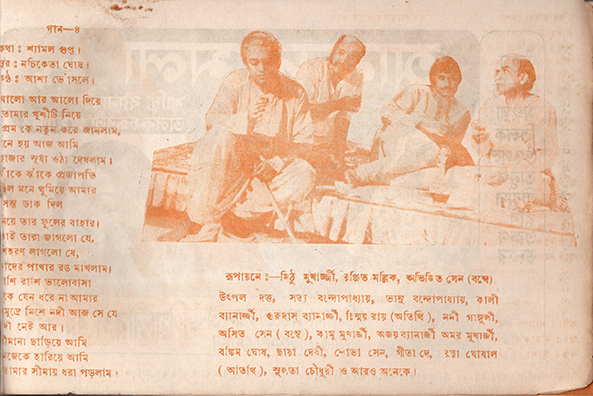 গান—৪
কথা : শ্যামল গুপ্ত।
সুর : নচিকেতা ঘোষ।
কণ্ঠ : আশা ভোঁসলে।
আলো আর আলো দিয়ে
তোমার খুশীটি নিয়ে
প্রেম কে নতুন করে জানলাম,
মনে হয় আজ আমি
হাজার সূর্য্য ওঠা দেখলাম।
ঝাঁকে ঝাঁকে প্রজাপতি
মনে ঘুমিয়ে আমার
ডাক দিল
নিয়ে তার ফুলের বাহার।
তাই তারা জাগলো যে,
শিহরণ লাগলো যে,
তাদের পাখার রঙ মাখলাম।
রাশি রাশি ভালোবাসা
বুকে যেন ধরে না আমার
সমুদ্রে মিশে নদী আজ সে যে
নদী নেই আর।
সীমানা ছাড়িয়ে আমি
নিজেকে হারিয়ে আমি
তোমার সীমায় ধরা পড়লাম।
রূপায়নে :—মিঠু মুখার্জ্জী, রঞ্জিত মল্লিক, অভিজিত সেন (বম্বে)
উৎপল দত্ত, সত্য বন্দ্যোপাধ্যায়, ভানু বন্দোপাধ্যায়, কালী
ব্যানার্জী, হরুদাস ব্যানার্জী, চিন্ময় রায় (অতিথি), ননী গাঙ্গুলী,
অসিত সেন (বম্বে), কামু মুখার্জী, অজয় ব্যানার্জী অমর মুখার্জী,
বঙ্কিম ঘোষ, ছায়া দেবী, শোভা সেন, গীতা দে, রত্না ঘোষাল
(অতিথি), সুলতা চৌধুরী ও আরও অনেকে।